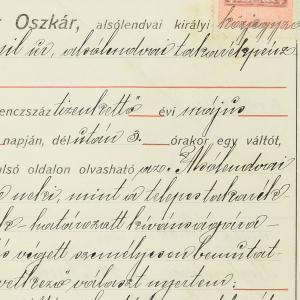 Oszkár, alsólendvai királyi közjegyző
úr, alsólendvai takarékpénz
enczszáz tizenkettő évi május
napján, dél után 3. órakor egy váltót,
alsó oldalon olvasható az "Alsólendvai
neki, mint a telepes takarék
k határozott kívánságára
végett személyesen bemutat-
vetkező választ nyertem: